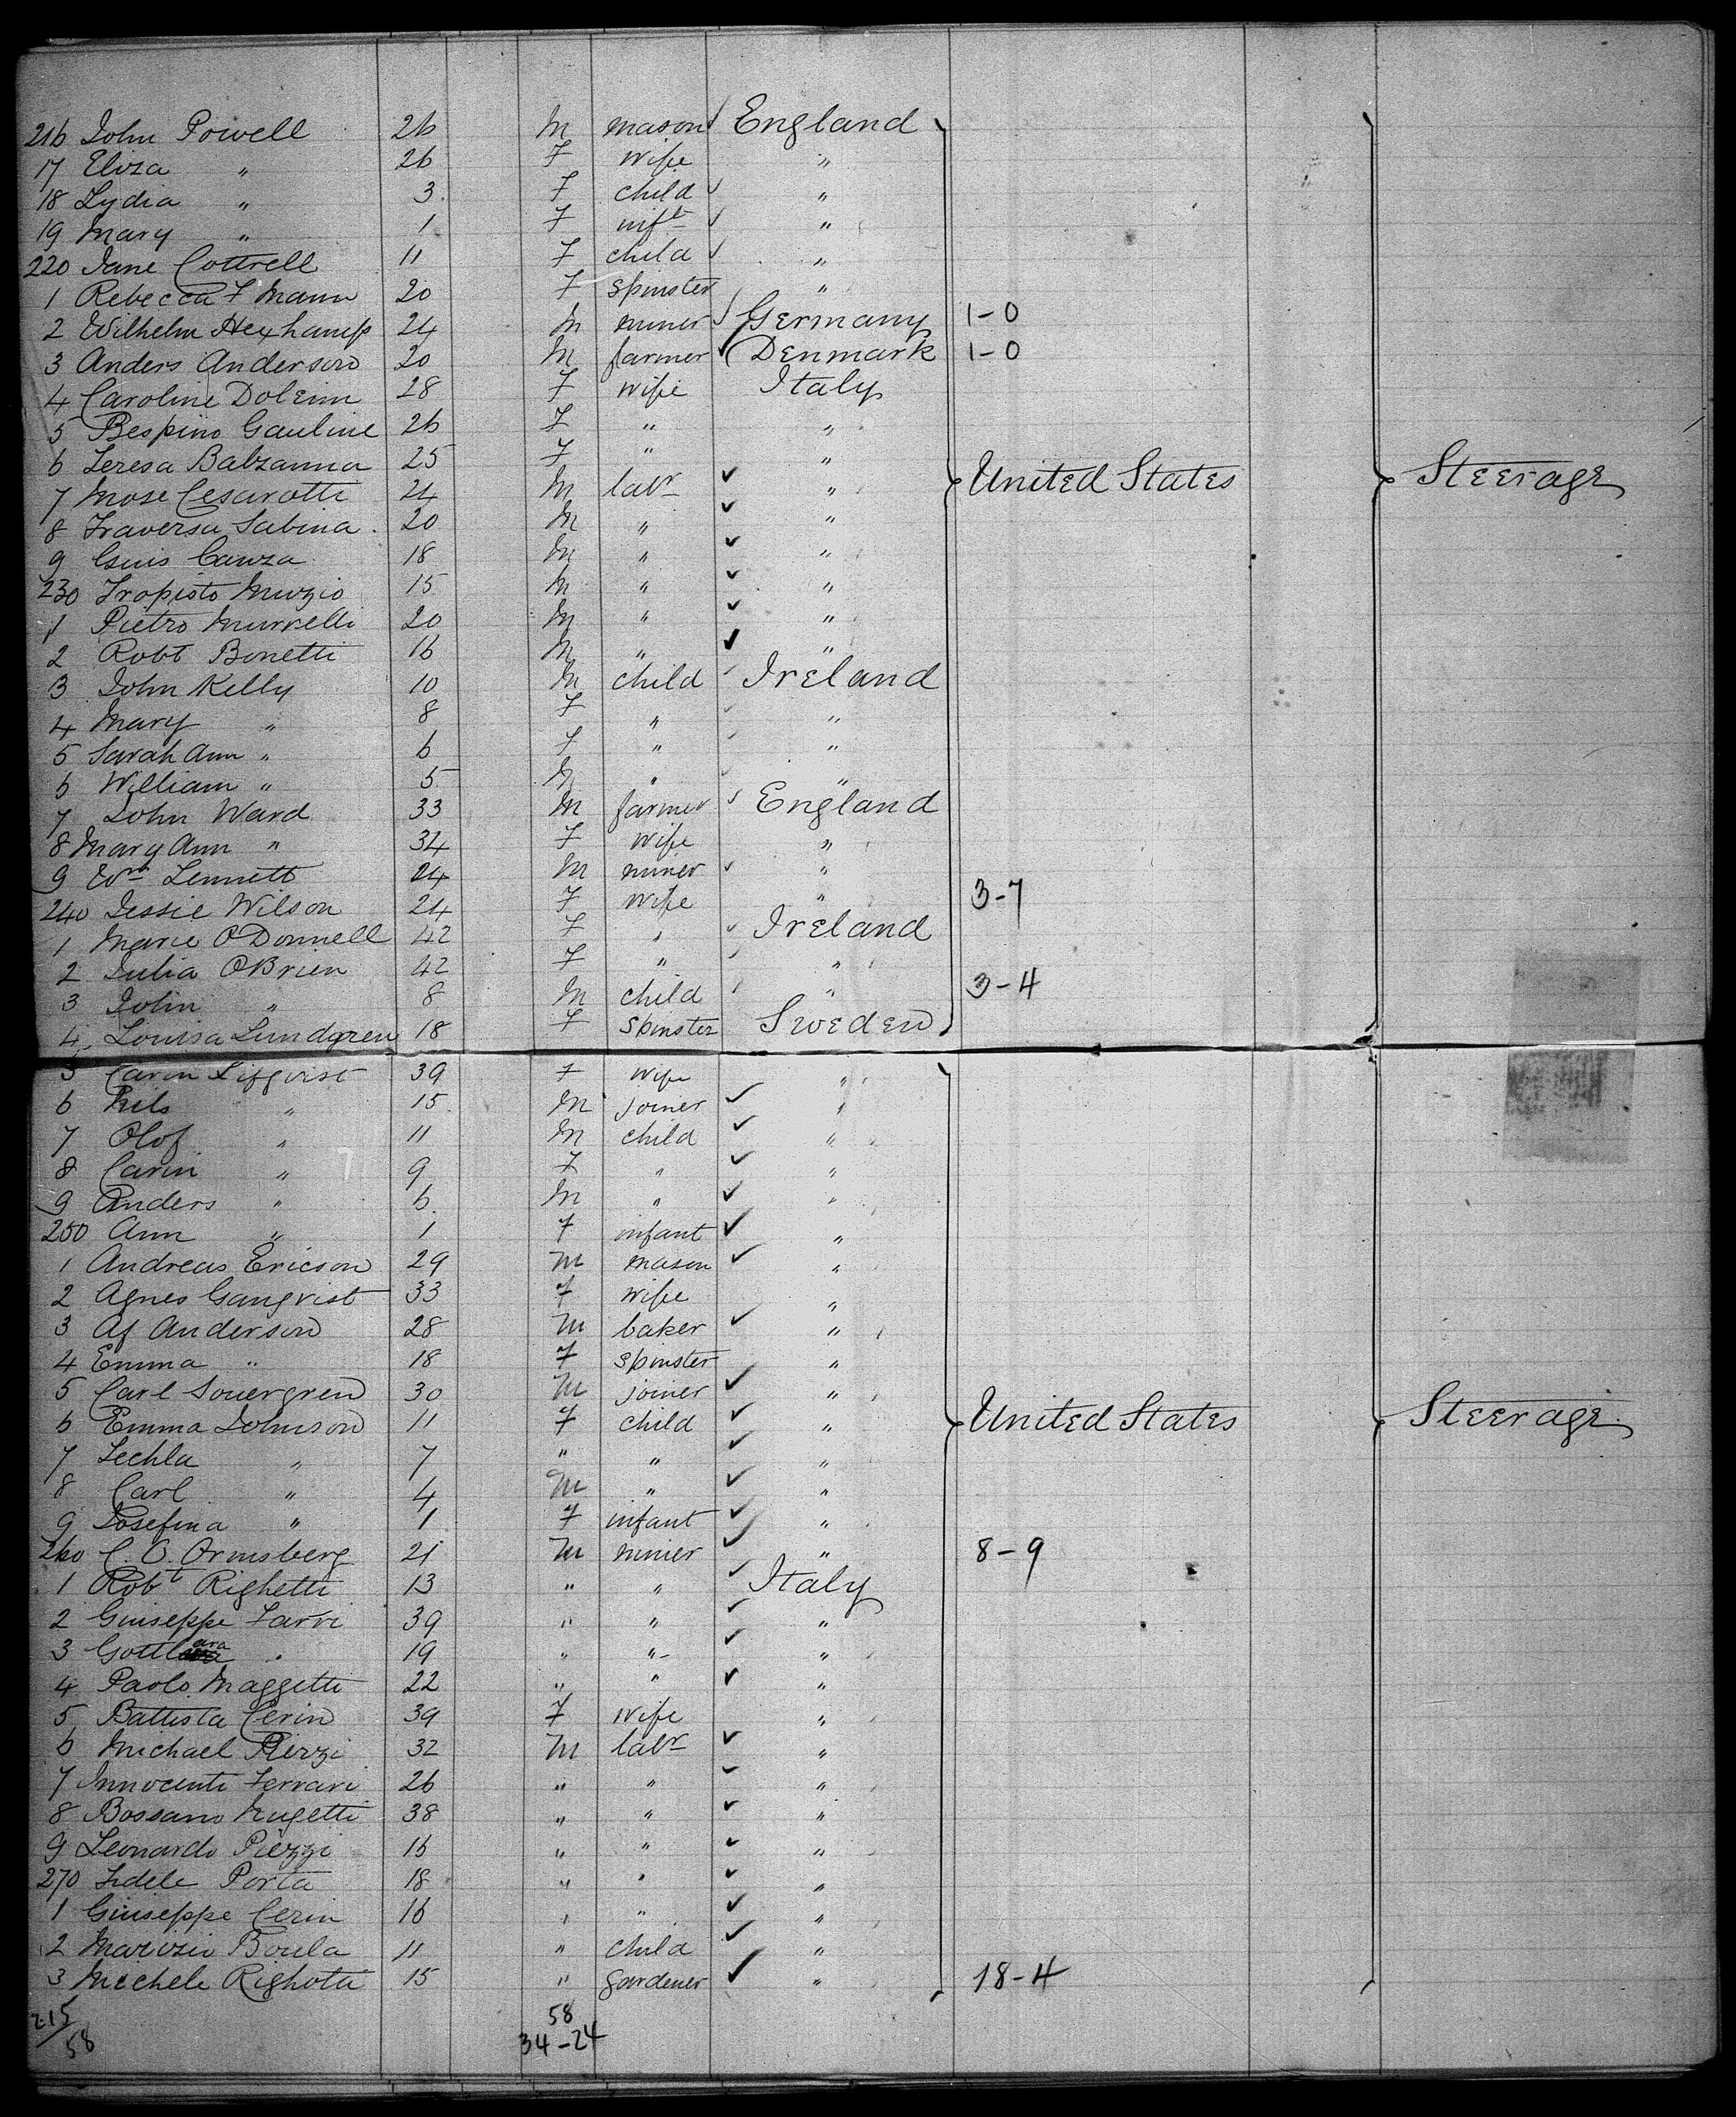 216 John Powell 26 M mason England
17 Eliza " 26 F wife "
18 Lydia " 3 F child "
19 Mary " 1 F inft "
220 Jane Cottrell 11 F child "
1 Rebecca F Mann 20 F spinster "
2 Wilhelm Hexhamp 24 M miner Germany 1-0
3 Anders Anderson 20 M farmer Denmark 1-0
4 Caroline Doleini 28 F wife Italy
5 Bespino Gauline 26 F " "
6 Teresa Balzanna 25 F " "
7 Mose Cesarotti 24 M labr " United States Steerage
8 Traversa Sabina 20 M " "
9 Guis Cauza 18 M " "
230 Tropisto Muzio 15 M " "
1 Pietro Murrelli 20 M " "
2 Robt Bonetti 16 M " "
3 John Kelly 10 M child Ireland
4 Mary " 8 F " "
5 Sarah Ann " 6 F " "
6 William " 5 M " "
7 John Ward 33 M farmer England
8 Mary Ann " 34 F wife "
9 Wm Lennett 24 M miner "
240 Jessie Wilson 24 F wife " 3-7
1 Marie O'Donnell 42 F " Ireland
2 Julia O'Brien 42 F " "
3 John " 8 M child " 3-4
4 Louisa Lundgren 18 F spinster Sweden
5 Carin Lifqvist 39 F wife "
6 Nils " 15 M joiner "
7 Olof " 11 M child "
8 Carin " 9 F " "
9 Anders " 6 M " "
250 Ann " 1 F infant "
1 Andreas Ericson 29 M mason "
2 Agnes Gangvist 33 F wife "
3 Af Anderson 28 M baker "
4 Emma " 18 F spinster "
5 Carl Souergren 30 M joiner "
6 Emma Johnson 11 F child " United States Steerage
7 Techla " 7 " " "
8 Carl " 4 M " "
9 Josefina " 1 F infant "
260 C. O. Ormsberg 21 M miner " 8-9
1 Robt Righetti 13 " " Italy
2 Guiseppe Tarvi 39 " " "
3 " 19 " " "
4 Paolo Maggetti 22 " " "
5 Battista Cerin 39 F wife "
6 Michael Pezzi 32 M labr "
7 Innocenti Ferrari 26 " " "
8 Bossano Mugetti 38 " " "
9 Leonardo Piezzi 16 " " "
270 Fidele Porta 18 " " "
1 Guiseppe Cerin 16 " " "
2 Marizio Boula 11 " child "
3 Michele Righotti 15 " gardener " 18-4
215 58
58 34-24